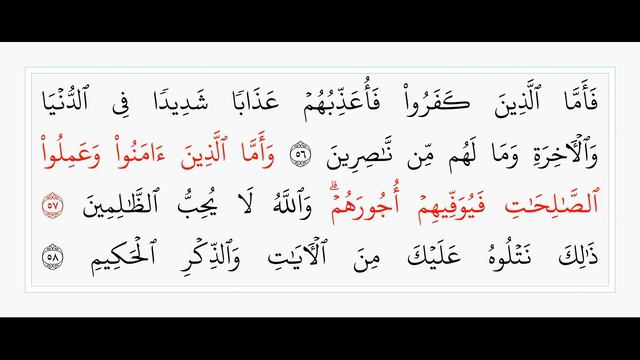 فَأَمَّا ٱلَّذِينَ كَفَرُوا۟ فَأُعَذِّبُهُمۡ عَذَابٗا شَدِيدٗا فِي ٱلدُّنۡيَا
وَٱلۡأٓخِرَةِ وَمَا لَهُم مِّن نَّٰصِرِينَ ٥٦ وَأَمَّا ٱلَّذِينَ ءَامَنُوا۟ وَعَمِلُوا۟
ٱلصَّٰلِحَٰتِ فَيُوَفِّيهِمۡ أُجُورَهُمۡۗ وَٱللَّهُ لَا يُحِبُّ ٱلظَّٰلِمِينَ ٥٧
ذَٰلِكَ نَتۡلُوهُ عَلَيۡكَ مِنَ ٱلۡأٓيَٰتِ وَٱلذِّكۡرِ ٱلۡحَكِيمِ ٥٨